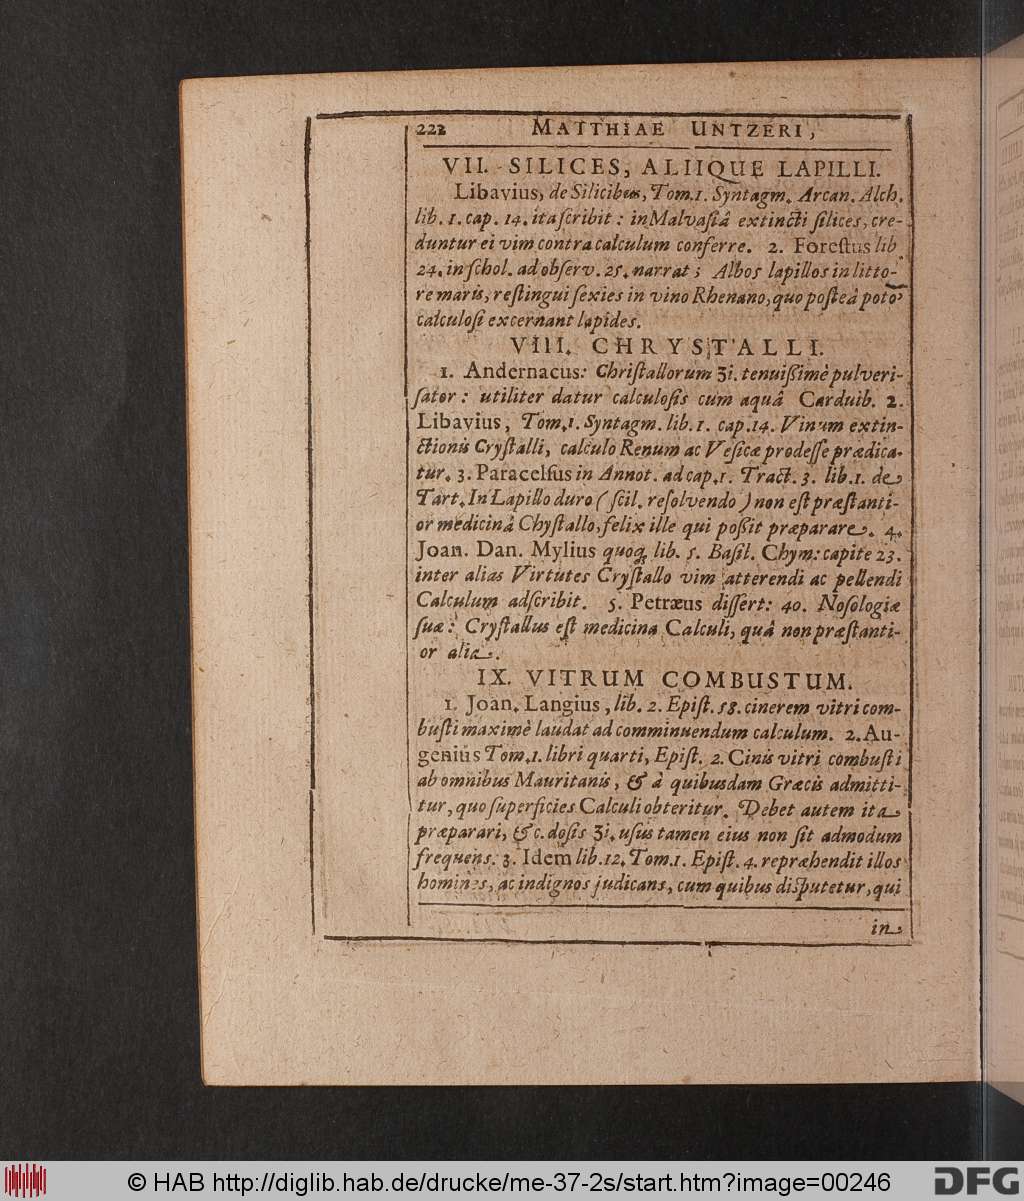 222 MATTHIAE UNTZERI,
VII. SILICES, ALIIQUE LAPILLI.
Libavius, de Silicibus, Tom.1. Syntagm. Arcan. Alch.
lib. 1. cap. 14. ita ſcribit: in Malvaſiâ extincti ſilices, cre-
duntur ei vim contra calculum conferre. 2. Foreſtus lib
24. in ſchol. ad obſerv. 25. narrat; Albos lapillos in litto-
re maris, reſtingui ſexies in vino Rhenano, quo poſteâ poto,
calculoſi excernant lapides.
VIII. CHRYSTALLI.
1. Andernacus: Chriſtallorum ʒi. tenuißimè pulveri-
ſator: utiliter datur calculoſis cum aquâ Carduib. 2.
Libavius, Tom.1. Syntagm. lib. 1. cap. 14. Vinum extin-
ctionis Cryſtalli, calculo Renum ac Veſicæ prodeſſe prædica-
tur. 3. Paracelſus in Annot. ad cap. 1. Tract. 3. lib. 1. de
Tart. In Lapillo duro (ſcil. reſolvendo) non eſt præſtanti-
or medicinâ Chyſtallo, felix ille qui poßit præparare. 4.
Joan. Dan. Mylius quoq; lib. 5. Baſil. Chym: capite 23.
inter alias Virtutes Cryſtallo vim atterendi ac pellendi
Calculum adſcribit. 5. Petræus diſſert: 40. Noſologiæ
ſuæ: Cryſtallus eſt medicina Calculi, quâ non præſtanti-
or alia.
IX. VITRUM COMBUSTUM.
1. Joan. Langius, lib. 2. Epiſt. 58. cinerem vitri com-
buſti maximè laudat ad comminuendum calculum. 2. Au-
genius Tom.1. libri quarti, Epiſt. 2. Cinis vitri combuſti
ab omnibus Mauritanis, & à quibusdam Græcis admitti-
tur, quo ſuperficies Calculi obteritur. Debet autem ita
præparari, &c. doſis ʒi. uſus tamen eius non ſit admodum
frequens. 3. Idem lib. 12. Tom. 1. Epiſt. 4. repræhendit illos
homines, ac indignos judicans, cum quibus diſputetur, qui
in
© HAB http://diglib.hab.de/drucke/me-37-2s/start.htm?image=00246
DFG